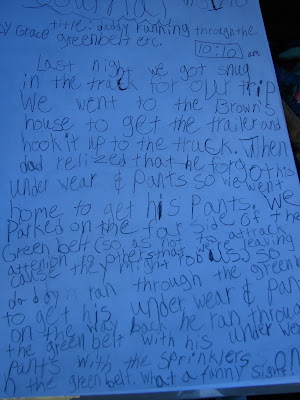 Journal
By Grace title: daddy running through the
greenbelt etc. 10:10 am
Last night we got snug
in the truck for our trip
We went to the Brown's
house to get the trailer and
hook it up to the truck. Then
dad relized that he forgot his
under wear & pants so we went
home to get his pants. we
Parked on the far side of the
Green belt (so as not to attrack
attenion the others that we're leaving
cause they might rob us) so
daddy ran through the greenb
to get his under wear & pan
on the way back he ran throug
the green belt with his under we
pants with the sprinklers on
in the green belt. what a funny sight!